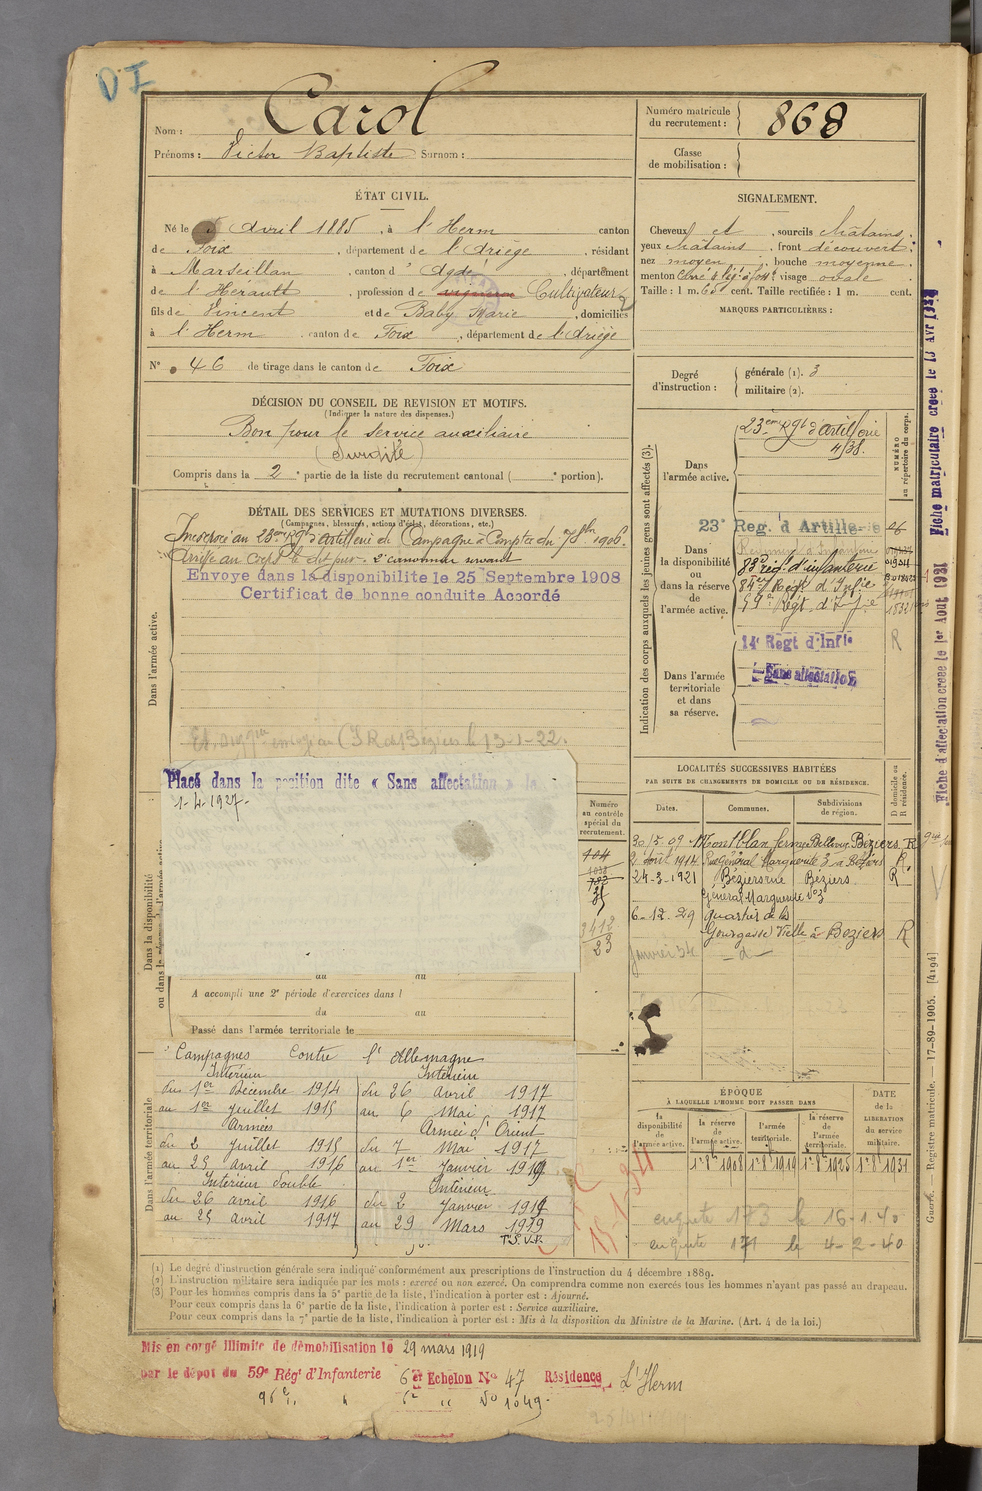 DI
Nom : Carol
Prénoms : Victor Baptiste Surnom :
Numéro matricule du recrutement : 868
Classe de mobilisation :
ÉTAT CIVIL.
Né le 5 Avril 1885, à l'Herm canton
de Foix, département de l'Ariège, résidant
à Marseillan, canton d'Agde, département
de l'Hérault, profession de vigneron Cultivateur
fils de Vincent et de Baby Marie, domiciliés
à l'Herm canton de Foix, département de l'Ariège
N° 46 de tirage dans le canton de Foix
SIGNALEMENT.
Cheveux et, sourcils châtains
yeux châtains, front découvert
nez moyen, bouche moyenne
menton visage ovale
Taille : 1 m. 60 cent. Taille rectifiée : 1 m. cent.
MARQUES PARTICULIÈRES :
Degré d'instruction : générale (1). 3
militaire (2).
DÉCISION DU CONSEIL DE REVISION ET MOTIFS.
(Indiquer la nature des dispenses.)
Bon pour le service auxiliaire
(Surdité)
Compris dans la 2e partie de la liste du recrutement cantonal ( e portion).
DÉTAIL DES SERVICES ET MUTATIONS DIVERSES.
(Campagnes, blessures, actions d'éclat, décorations, etc.)
Incorporé au 23ème Rgt d'artillerie de Campagne à Compter du 7 8bre 1906.
Arrivé au corps le dit jour. 2e canonnier servant
Envoyé dans la disponibilité le 25 Septembre 1908
Certificat de bonne conduite Accordé
Dans l'armée active.
Béziers le 13-1-22.
Placé dans la position dite « Sans affectation » le
1-4-1927.
Dans la disponibilité
ou dans la réserve de l'armée active.
du au
A accompli une 2e période d'exercices dans l
du au
Passé dans l'armée territoriale le
Indication des corps auxquels les jeunes gens sont affectés (3).
Dans l'armée active.
23ème Rgt d'artillerie
4/38.
NUMÉRO au répertoire du corps.
Dans la disponibilité ou dans la réserve de l'armée active.
23e Reg. d'Artillerie
83e rég. d'infanterie
84e Régt d'Infie
59e Régt d'Infie
Dans l'armée territoriale et dans sa réserve.
14e Regt d'Infie
Sans affectation
R
Numéro au contrôle spécial du recrutement.
104
1038
783
3412
23
LOCALITÉS SUCCESSIVES HABITÉES
PAR SUITE DE CHANGEMENTS DE DOMICILE OU DE RÉSIDENCE.
Dates. Communes. Subdivisions de région. D domicile ou R résidence.
30.5.09 Montblanc ferme Bellevue Béziers R
2 août 1914 Rue Général Margueritte 3 à Béziers R
24-3-1921 Béziers rue Béziers. R
Général Margueritte N° 3
6-12-29 quartier de la
Gourgasse Vieille à Béziers R
Janvier 34 -d-
Dans l'armée territoriale
Campagnes Contre l'Allemagne
Intérieur
du 1er Décembre 1914
au 1er Juillet 1915
Armées
du 2 Juillet 1915
au 25 Avril 1916
Intérieur double
du 26 avril 1916
au 25 avril 1917
Intérieur
du 26 avril 1917
au 6 Mai 1917
Armée d'Orient
du 7 Mai 1917
au 1er Janvier 1919
Intérieur
du 2 Janvier 1919
au 29 Mars 1919
T.S.V.P.
15-1-34
ÉPOQUE
À LAQUELLE L'HOMME DOIT PASSER DANS
la disponibilité de l'armée active. la réserve de l'armée active. l'armée territoriale. la réserve de l'armée territoriale.
DATE de la LIBÉRATION du service militaire.
1er 8bre 1908 1er 8bre 1919 1er 8bre 1925 1er 8bre 1931
enquete 173 le 16-1-40
enquete 171 le 4-2-40
(1) Le degré d'instruction générale sera indiqué conformément aux prescriptions de l'instruction du 4 décembre 1889.
(2) L'instruction militaire sera indiquée par les mots : exercé ou non exercé. On comprendra comme non exercés tous les hommes n'ayant pas passé au drapeau.
(3) Pour les hommes compris dans la 5e partie de la liste, l'indication à porter est : Ajourné.
Pour ceux compris dans la 6e partie de la liste, l'indication à porter est : Service auxiliaire.
Pour ceux compris dans la 7e partie de la liste, l'indication à porter est : Mis à la disposition du Ministre de la Marine. (Art. 4 de la loi.)
Mis en congé illimité de démobilisation le 29 mars 1919
par le dépôt du 59e Rég't d'Infanterie 6e Echelon N° 47 Résidence L'Herm
96e " " 6e " N° 1049-
Fiche matriculaire créée le 15 Avr 1932
Fiche d'affectation créée le 1er Aout 1931
Guerre. — Registre matricule. — 17-89-1905. [4194]